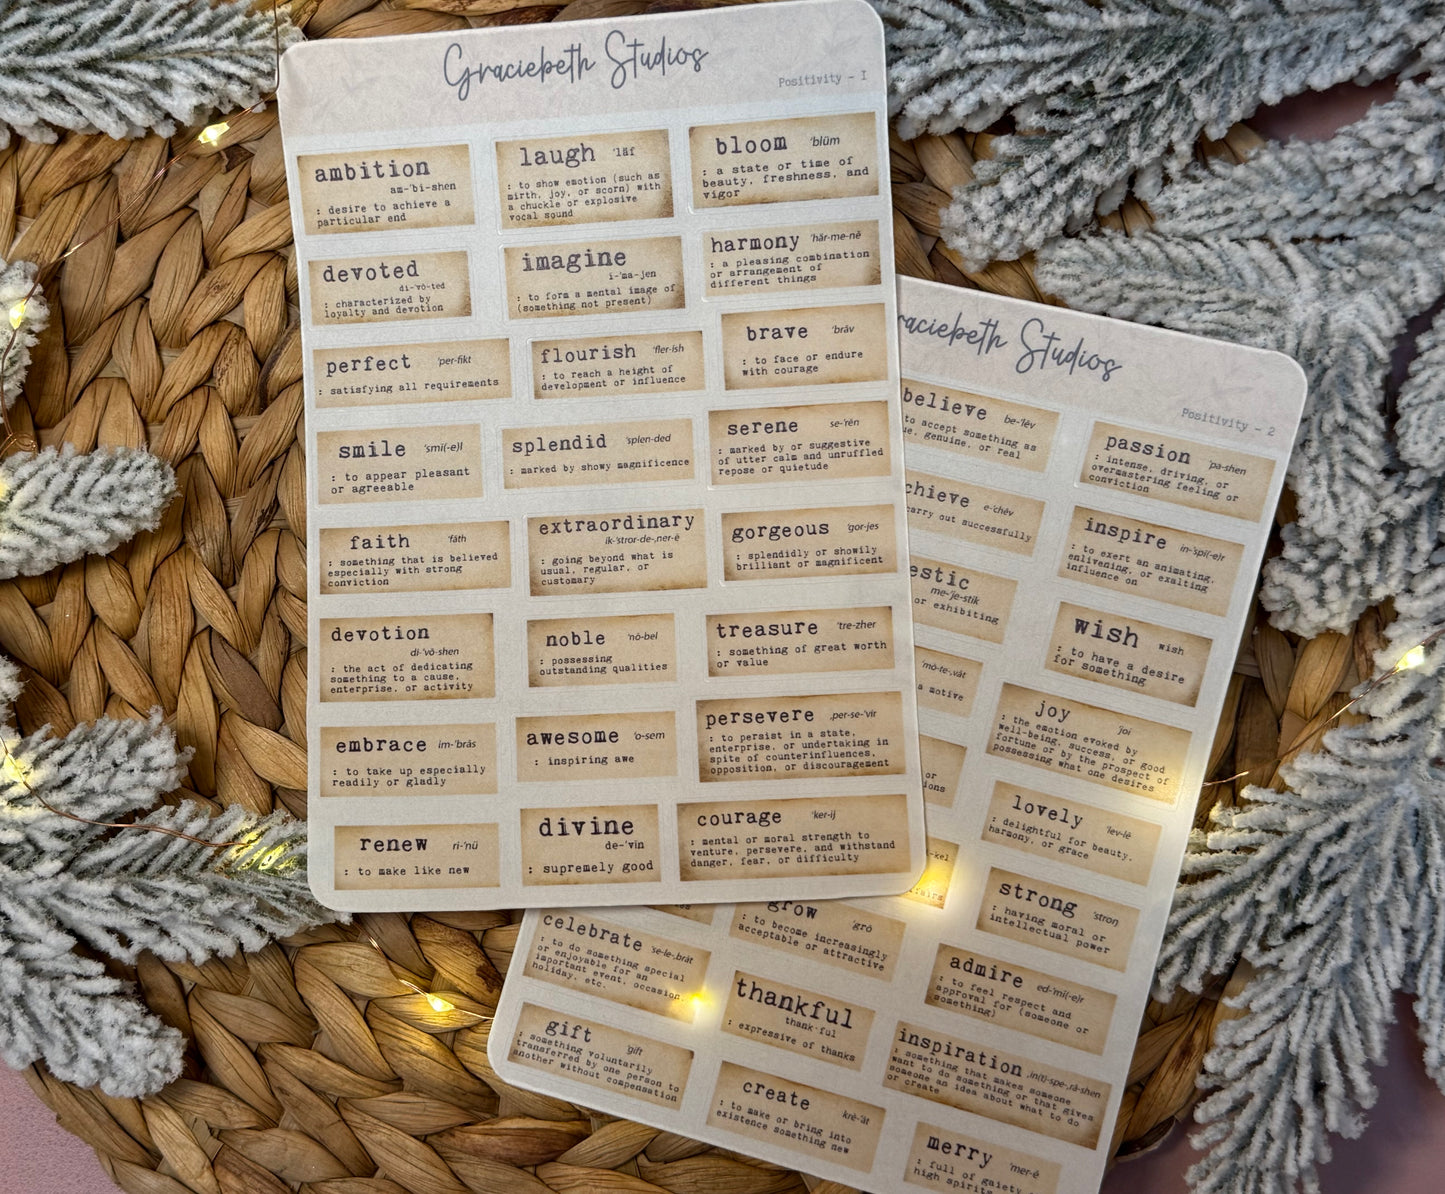 Graciebeth Studios
Positivity - 1
ambition
am-'bi-shen
: desire to achieve a
particular end
laugh 'läf
: to show emotion (such as
mirth, joy, or scorn) with
a chuckle or explosive
vocal sound
bloom 'blüm
: a state or time of
beauty, freshness, and
vigor
devoted
di-'vō-ted
: characterized by
loyalty and devotion
imagine
i-'ma-jen
: to form a mental image of
(something not present)
harmony 'här-me-nē
: a pleasing combination
or arrangement of
different things
perfect 'per-fikt
: satisfying all requirements
flourish 'fler-ish
: to reach a height of
development or influence
brave 'brāv
: to face or endure
with courage
smile 'smī(-e)l
: to appear pleasant
or agreeable
splendid 'splen-ded
: marked by showy magnificence
serene se-'rēn
: marked by or suggestive
of utter calm and unruffled
repose or quietude
faith 'fāth
: something that is believed
especially with strong
conviction
extraordinary
ik-'stror-de-,ner-ē
: going beyond what is
usual, regular, or
customary
gorgeous 'gor-jes
: splendidly or showily
brilliant or magnificent
devotion
di-'vō-shen
: the act of dedicating
something to a cause,
enterprise, or activity
noble 'nō-bel
: possessing
outstanding qualities
treasure 'tre-zher
: something of great worth
or value
embrace im-'brās
: to take up especially
readily or gladly
awesome 'o-sem
: inspiring awe
persevere ,per-se-'vir
: to persist in a state,
enterprise, or undertaking in
spite of counterinfluences,
opposition, or discouragement
renew ri-'nü
: to make like new
divine
de-'vīn
: supremely good
courage 'ker-ij
: mental or moral strength to
venture, persevere, and withstand
danger, fear, or difficulty
raciebeth Studios
Positivity - 2
believe be-'lēv
to accept something as
ue, genuine, or real
passion 'pa-shen
: intense, driving, or
overmastering feeling or
conviction
chieve e-'chēv
carry out successfully
inspire in-'spī(-e)r
: to exert an animating,
enlivening, or exalting
influence on
estic
me-'je-stik
or exhibiting
wish wish
: to have a desire
for something
'mō-te-,vāt
a motive
joy 'joi
: the emotion evoked by
well-being, success, or good
fortune or by the prospect of
possessing what one desires
or
ions
lovely 'lev-lē
: delightful for beauty,
harmony, or grace
-kel
ffairs
strong 'stron
: having moral or
intellectual power
grow 'grō
: to become increasingly
acceptable or attractive
celebrate 'se-le-,brāt
: to do something special
or enjoyable for an
important event, occasion,
holiday, etc.
admire ed-'mī(-e)r
: to feel respect and
approval for (someone or
something)
thankful
thank·ful
: expressive of thanks
gift 'gift
: something voluntarily
transferred by one person to
another without compensation
inspiration ,in(t)-spe-,rā-shen
: something that makes someone
want to do something or that gives
someone an idea about what to do
or create
create krē-'āt
: to make or bring into
existence something new
merry 'mer-ē
: full of gaiety
high spirits